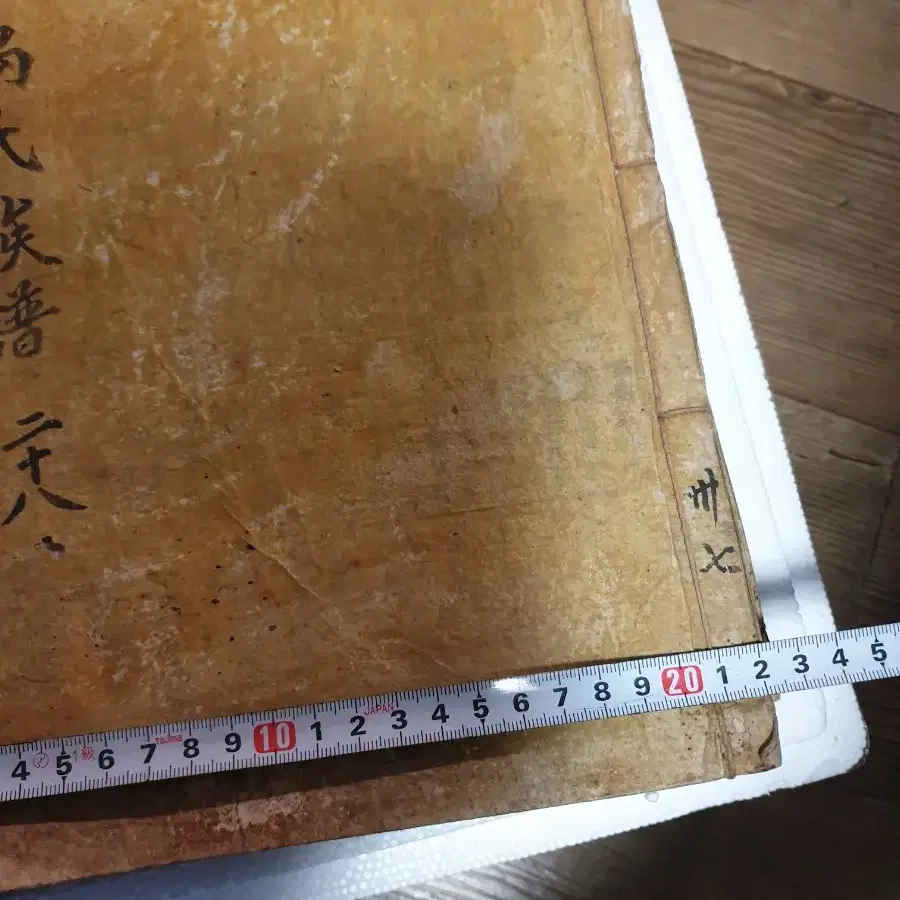 氏族譜 二十八
卅七
4 5 1級 6 7 Tajima 8 9 10 1 2 JAPAN 3 4 5 6 7 8 9 20 1 2 3 4 5